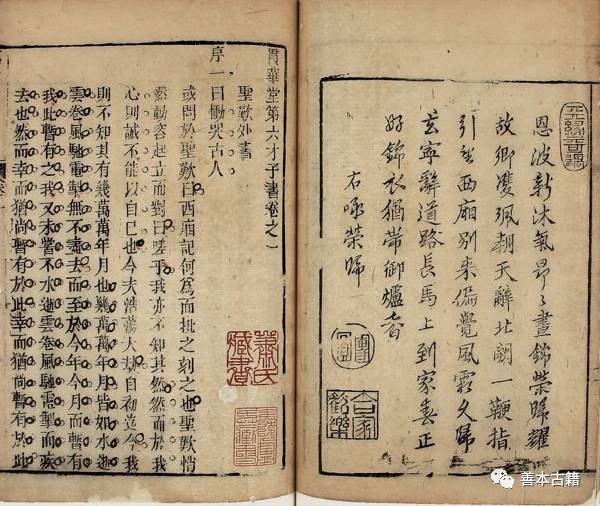 恩波新沐氣昂々晝錦榮歸耀
故鄉瓊珮朝天辭北闕一鞭指
引至西廂別来偏覺風霜久歸
去寧辭道路長馬上到家春正
好錦衣猶帶御爐香
右咏榮歸
團圓
合家歡樂
貫華堂第六才子書卷之一
聖歎外書
序一曰慟哭古人
或問於聖歎曰西廂記何為而批之刻之也聖歎悄
然動容起立而對曰嗟乎我亦不知其然然而於我
心則誠不能以自已也今夫浩蕩大劫自初迄今我
則不知其有幾萬萬年月也幾萬萬年月皆如水逝
雲卷風馳電掣無不盡去而至於今年今月而暫有
我此暫有之我又未嘗不水逝雲卷風馳電掣而疾
去也然而幸而猶尚暫有於此幸而猶尚暫有於此
善本古籍